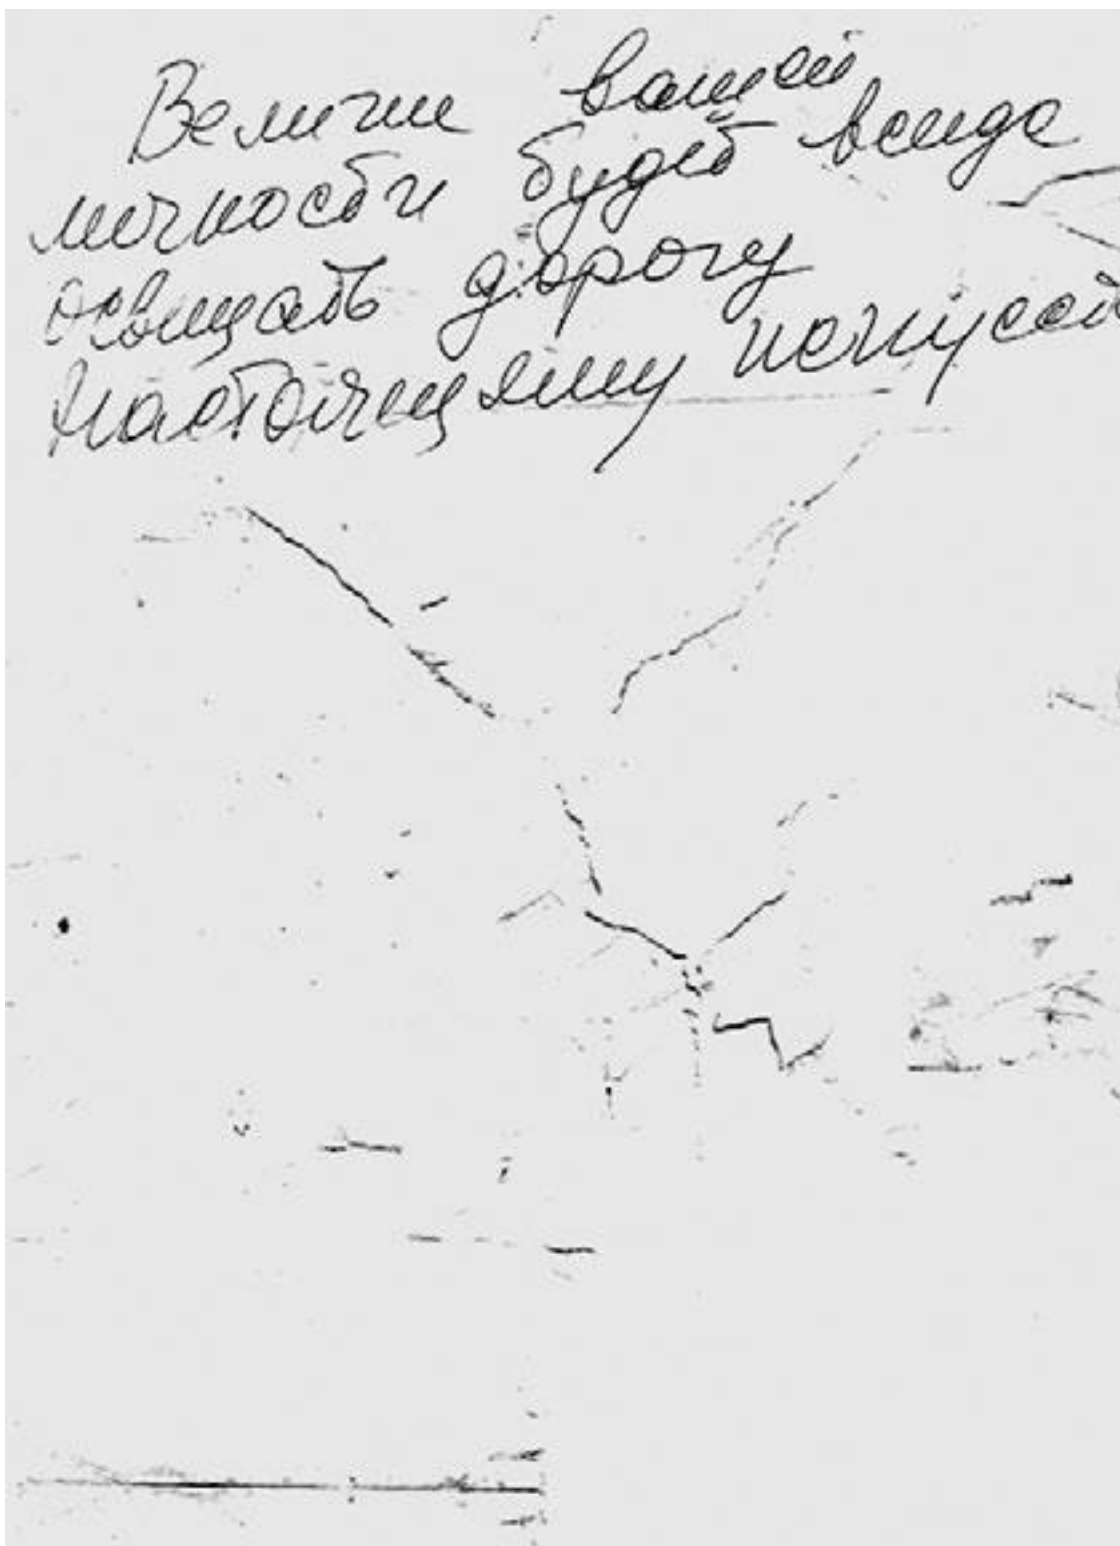 Величие вашей
личности будет всегда
освещать дорогу
настоящему искусст